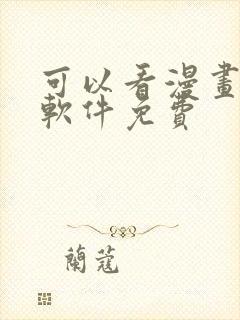 可以看漫畫
軟件免費
蘭蔻